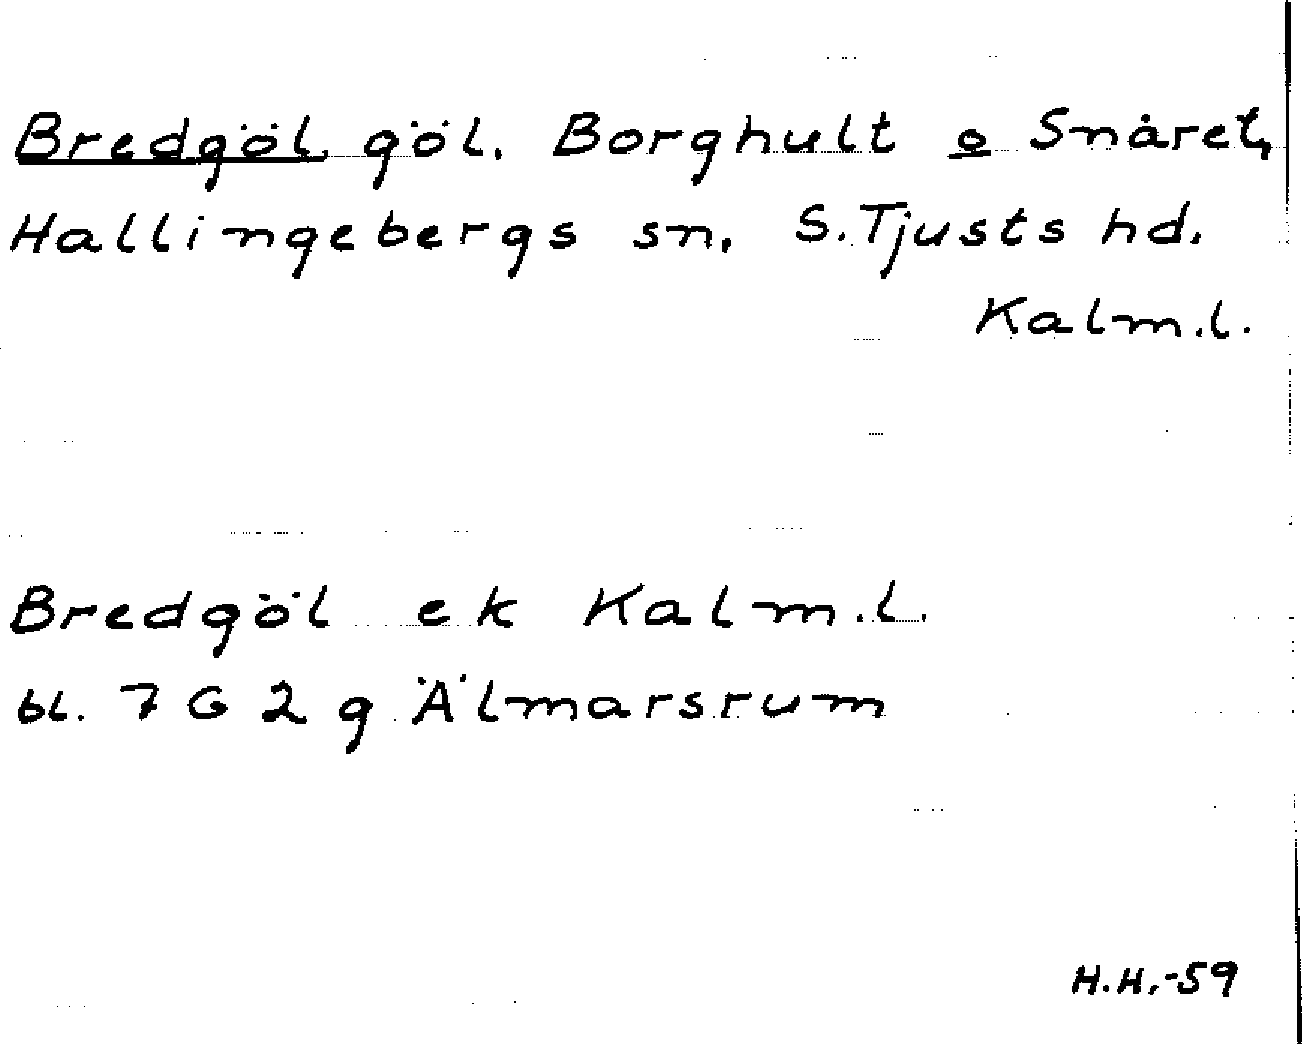 Bredgöl, göl, Borghult o Snåret,
Hallingebergs sn, S. Tjusts hd.
Kalm.l.
Bredgöl ek Kalm.l.
bl. 7 G 2 g Älmarsrum
H.H.-59